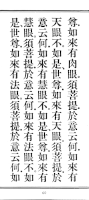 尊如來有肉眼須菩提於意云何如來有
天眼不如是世尊如來有天眼須菩提於
意云何如來有慧眼不如是世尊如來有
慧眼須菩提於意云何如來有法眼不如
是世尊如來有法眼須菩提於意云何如